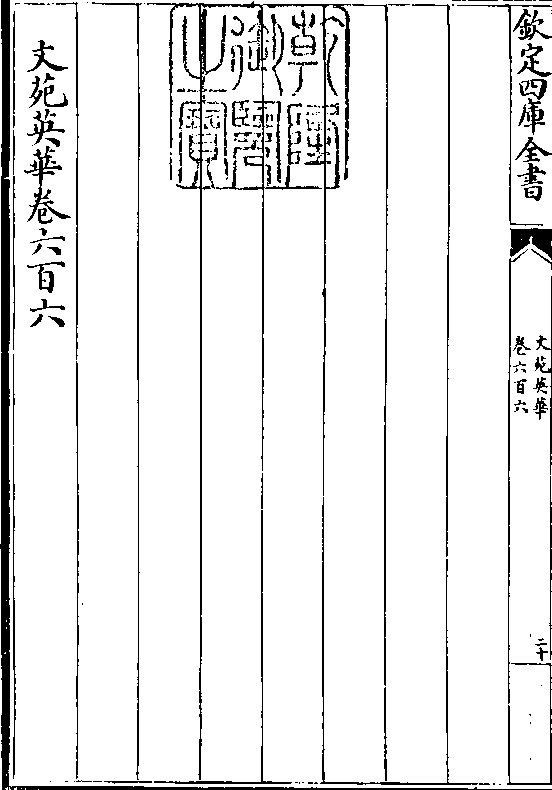 欽定四庫全書
文苑英華
卷六百六
二十
乾隆御覽之寶
文苑英華卷六百六